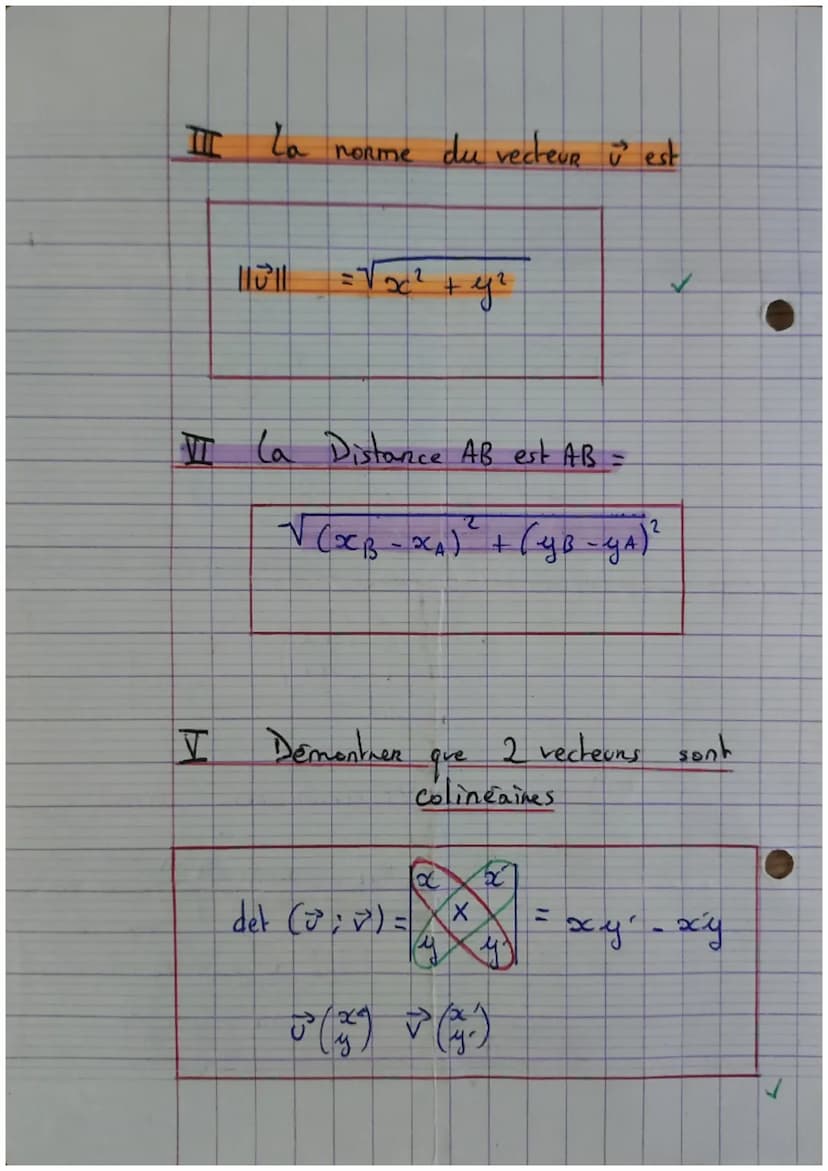 III La norme du vecteur u⃗ est
||u⃗|| = √x² + y²
VI La Distance AB est AB =
√(xB - xA)² + (yB - yA)²
V Démontrer que 2 vecteurs sont
colinéaires
det (u⃗ ; v⃗) = |x x'
x
y y'| = xy' - x'y
u⃗ (x y) v⃗ (x' y')